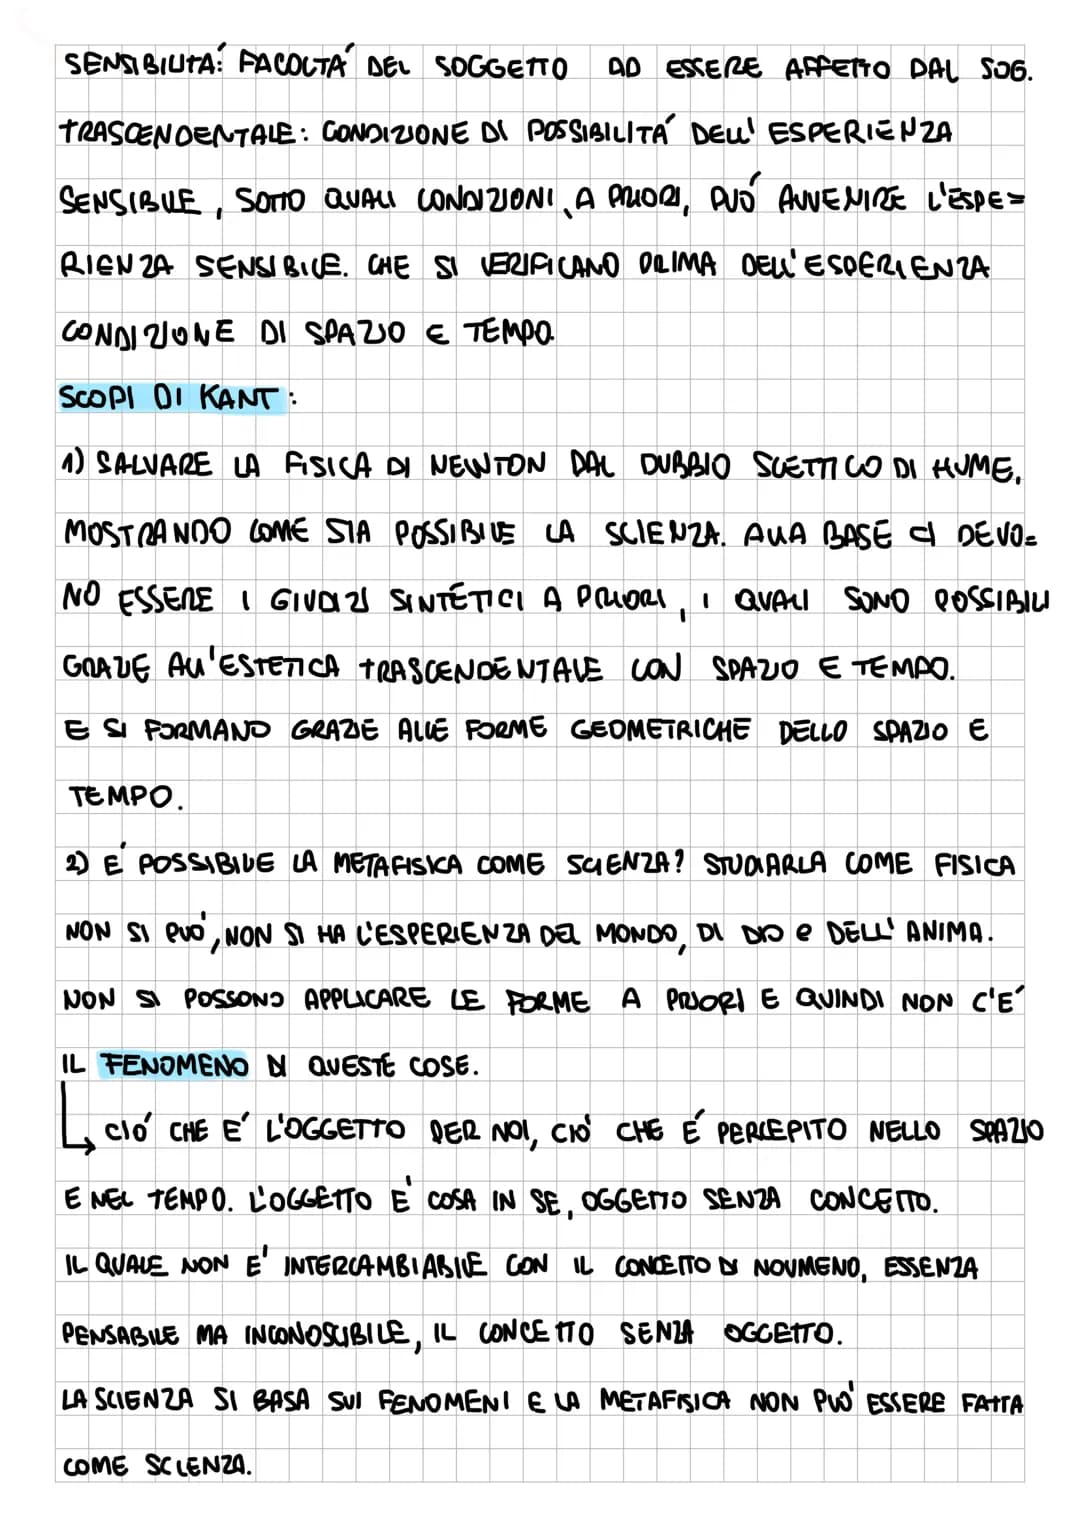 SENSIBILITÀ: FACOLTÀ DEL SOGGETTO AD ESSERE AFFETTO DAL SOG.
TRASCENDENTALE: CONDIZIONE DI POSSIBILITÀ DELL' ESPERIENZA
SENSIBILE, SOTTO QUALI CONDIZIONI, A PRIORI, PUÒ AVVENIRE L'ESPE=
RIENZA SENSIBILE. CHE SI VERIFICANO PRIMA DELL'ESPERIENZA
CONDIZIONE DI SPAZIO E TEMPO.
SCOPI DI KANT:
1) SALVARE LA FISICA DI NEWTON DAL DUBBIO SCETTICO DI HUME,
MOSTRANDO COME SIA POSSIBILE LA SCIENZA. ALLA BASE CI DEVO=
NO ESSERE I GIUDIZI SINTETICI A PRIORI, I QUALI SONO POSSIBILI
GRAZIE ALL'ESTETICA TRASCENDENTALE CON SPAZIO E TEMPO.
E SI FORMANO GRAZIE ALLE FORME GEOMETRICHE DELLO SPAZIO E
TEMPO.
2) È POSSIBILE LA METAFISICA COME SCIENZA? STUDIARLA COME FISICA
NON SI PUÒ, NON SI HA L'ESPERIENZA DEL MONDO, DI DIO e DELL' ANIMA.
NON SI POSSONO APPLICARE LE FORME A PRIORI E QUINDI NON C'É
IL FENOMENO DI QUESTE COSE.
CIÓ CHE É L'OGGETTO PER NOI, CIÒ CHE É PERCEPITO NELLO SPAZIO
E NEL TEMPO. L'OGGETTO E' COSA IN SE, OGGETTO SENZA CONCETTO.
IL QUALE NON E' INTERCAMBIABILE CON IL CONCETTO DI NOUMENO, ESSENZA
PENSABILE MA INCONOSCIBILE, IL CONCETTO SENZA OGGETTO.
LA SCIENZA SI BASA SUI FENOMENI E LA METAFISICA NON PUÒ ESSERE FATTA
COME SCIENZA.